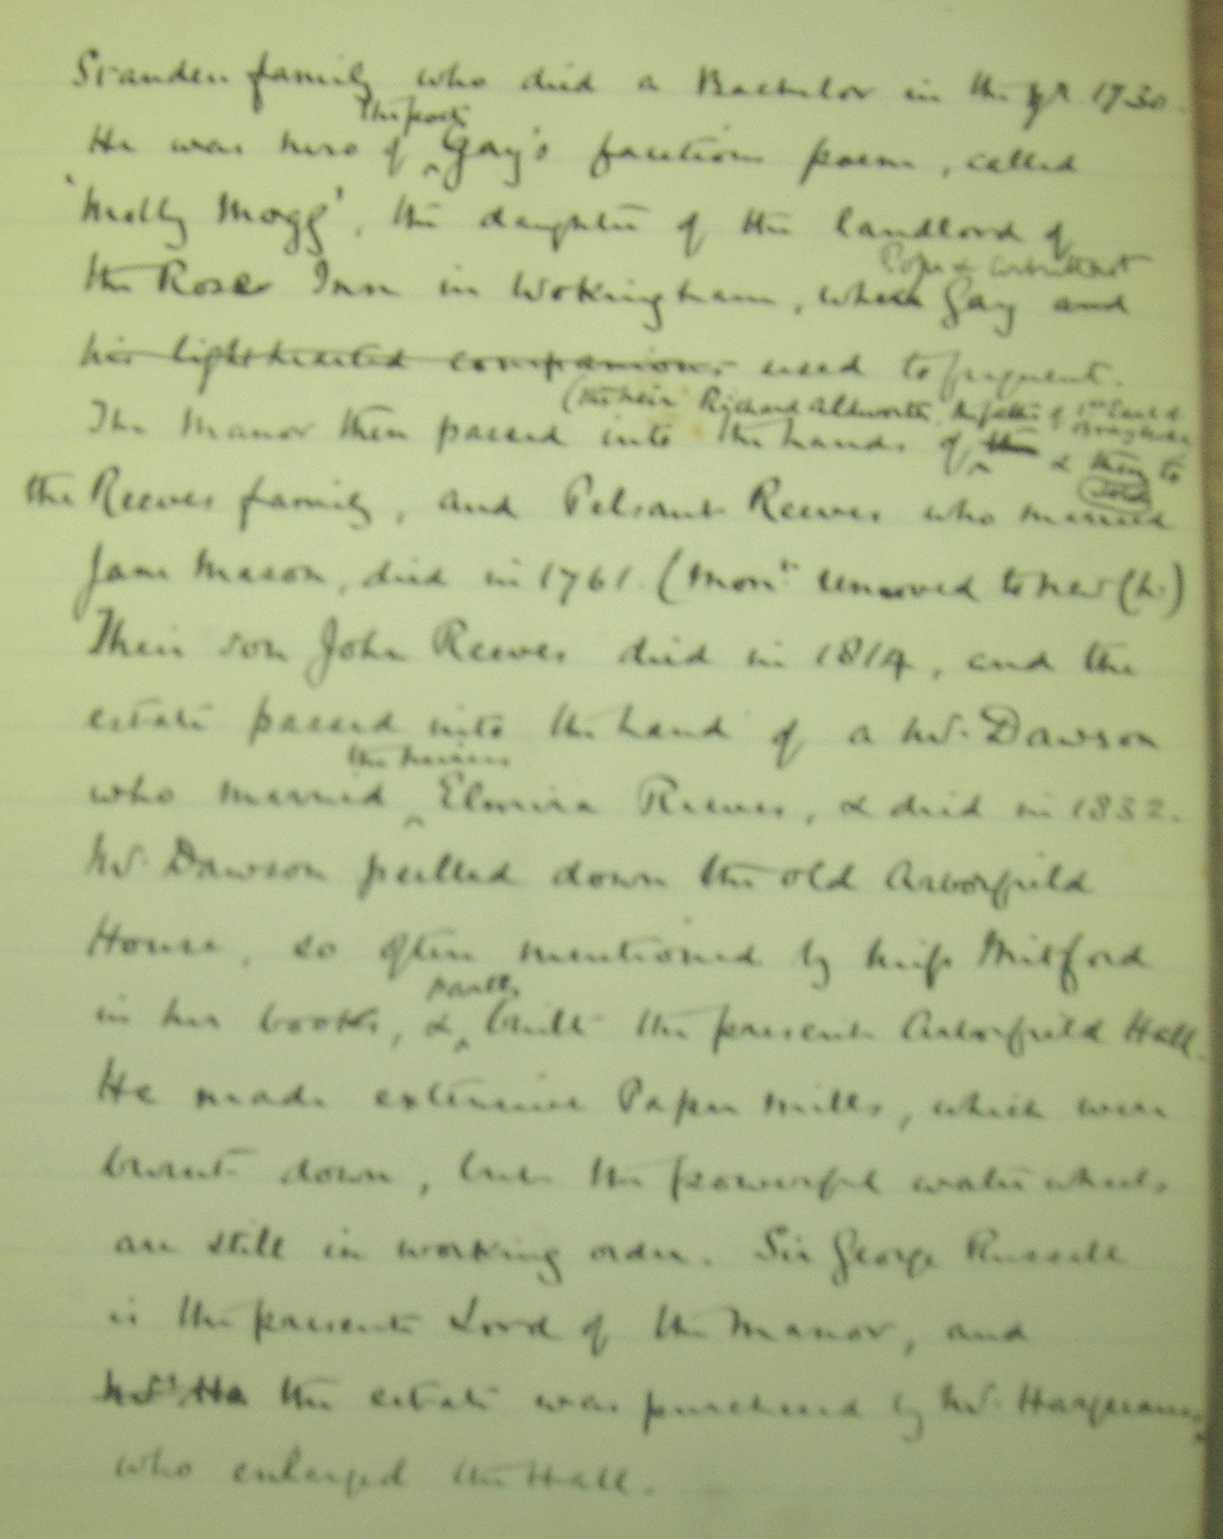 Standen family who died a Bachelor in the yr 1730.
the poet
He was hero of Gay's facetious poem, called
'Molly Mogg', the daughter of the landlord of
Pope & Arbuthnot
the Rose Inn in Wokingham, where Gay and
his lighthearted companions used to frequent.
(the heir Richard Aldworth, the father of 1st Earl of
Braybrooke
The Manor then passed into the hands of the & then to
sold
the Reeves family, and Pelsant Reeves who married
Jane Mason, died in 1761. (Mont removed to New Ch.)
Their son John Reeves died in 1814, and the
estate passed into the hand of a Mr. Dawson
the heiress
who married Elmira Reeves, & died in 1832.
Mr. Dawson pulled down the old Arborfield
House, so often mentioned by Miss Mitford
partly
in her books, & built the present Arborfield Hall.
He made extensive Paper Mills, which were
burnt down, but the powerful water wheels
are still in working order. Sir George Russell
is the present Lord of the Manor, and
the estate was purchased by Mr. Hargreaves,
who enlarged the Hall.